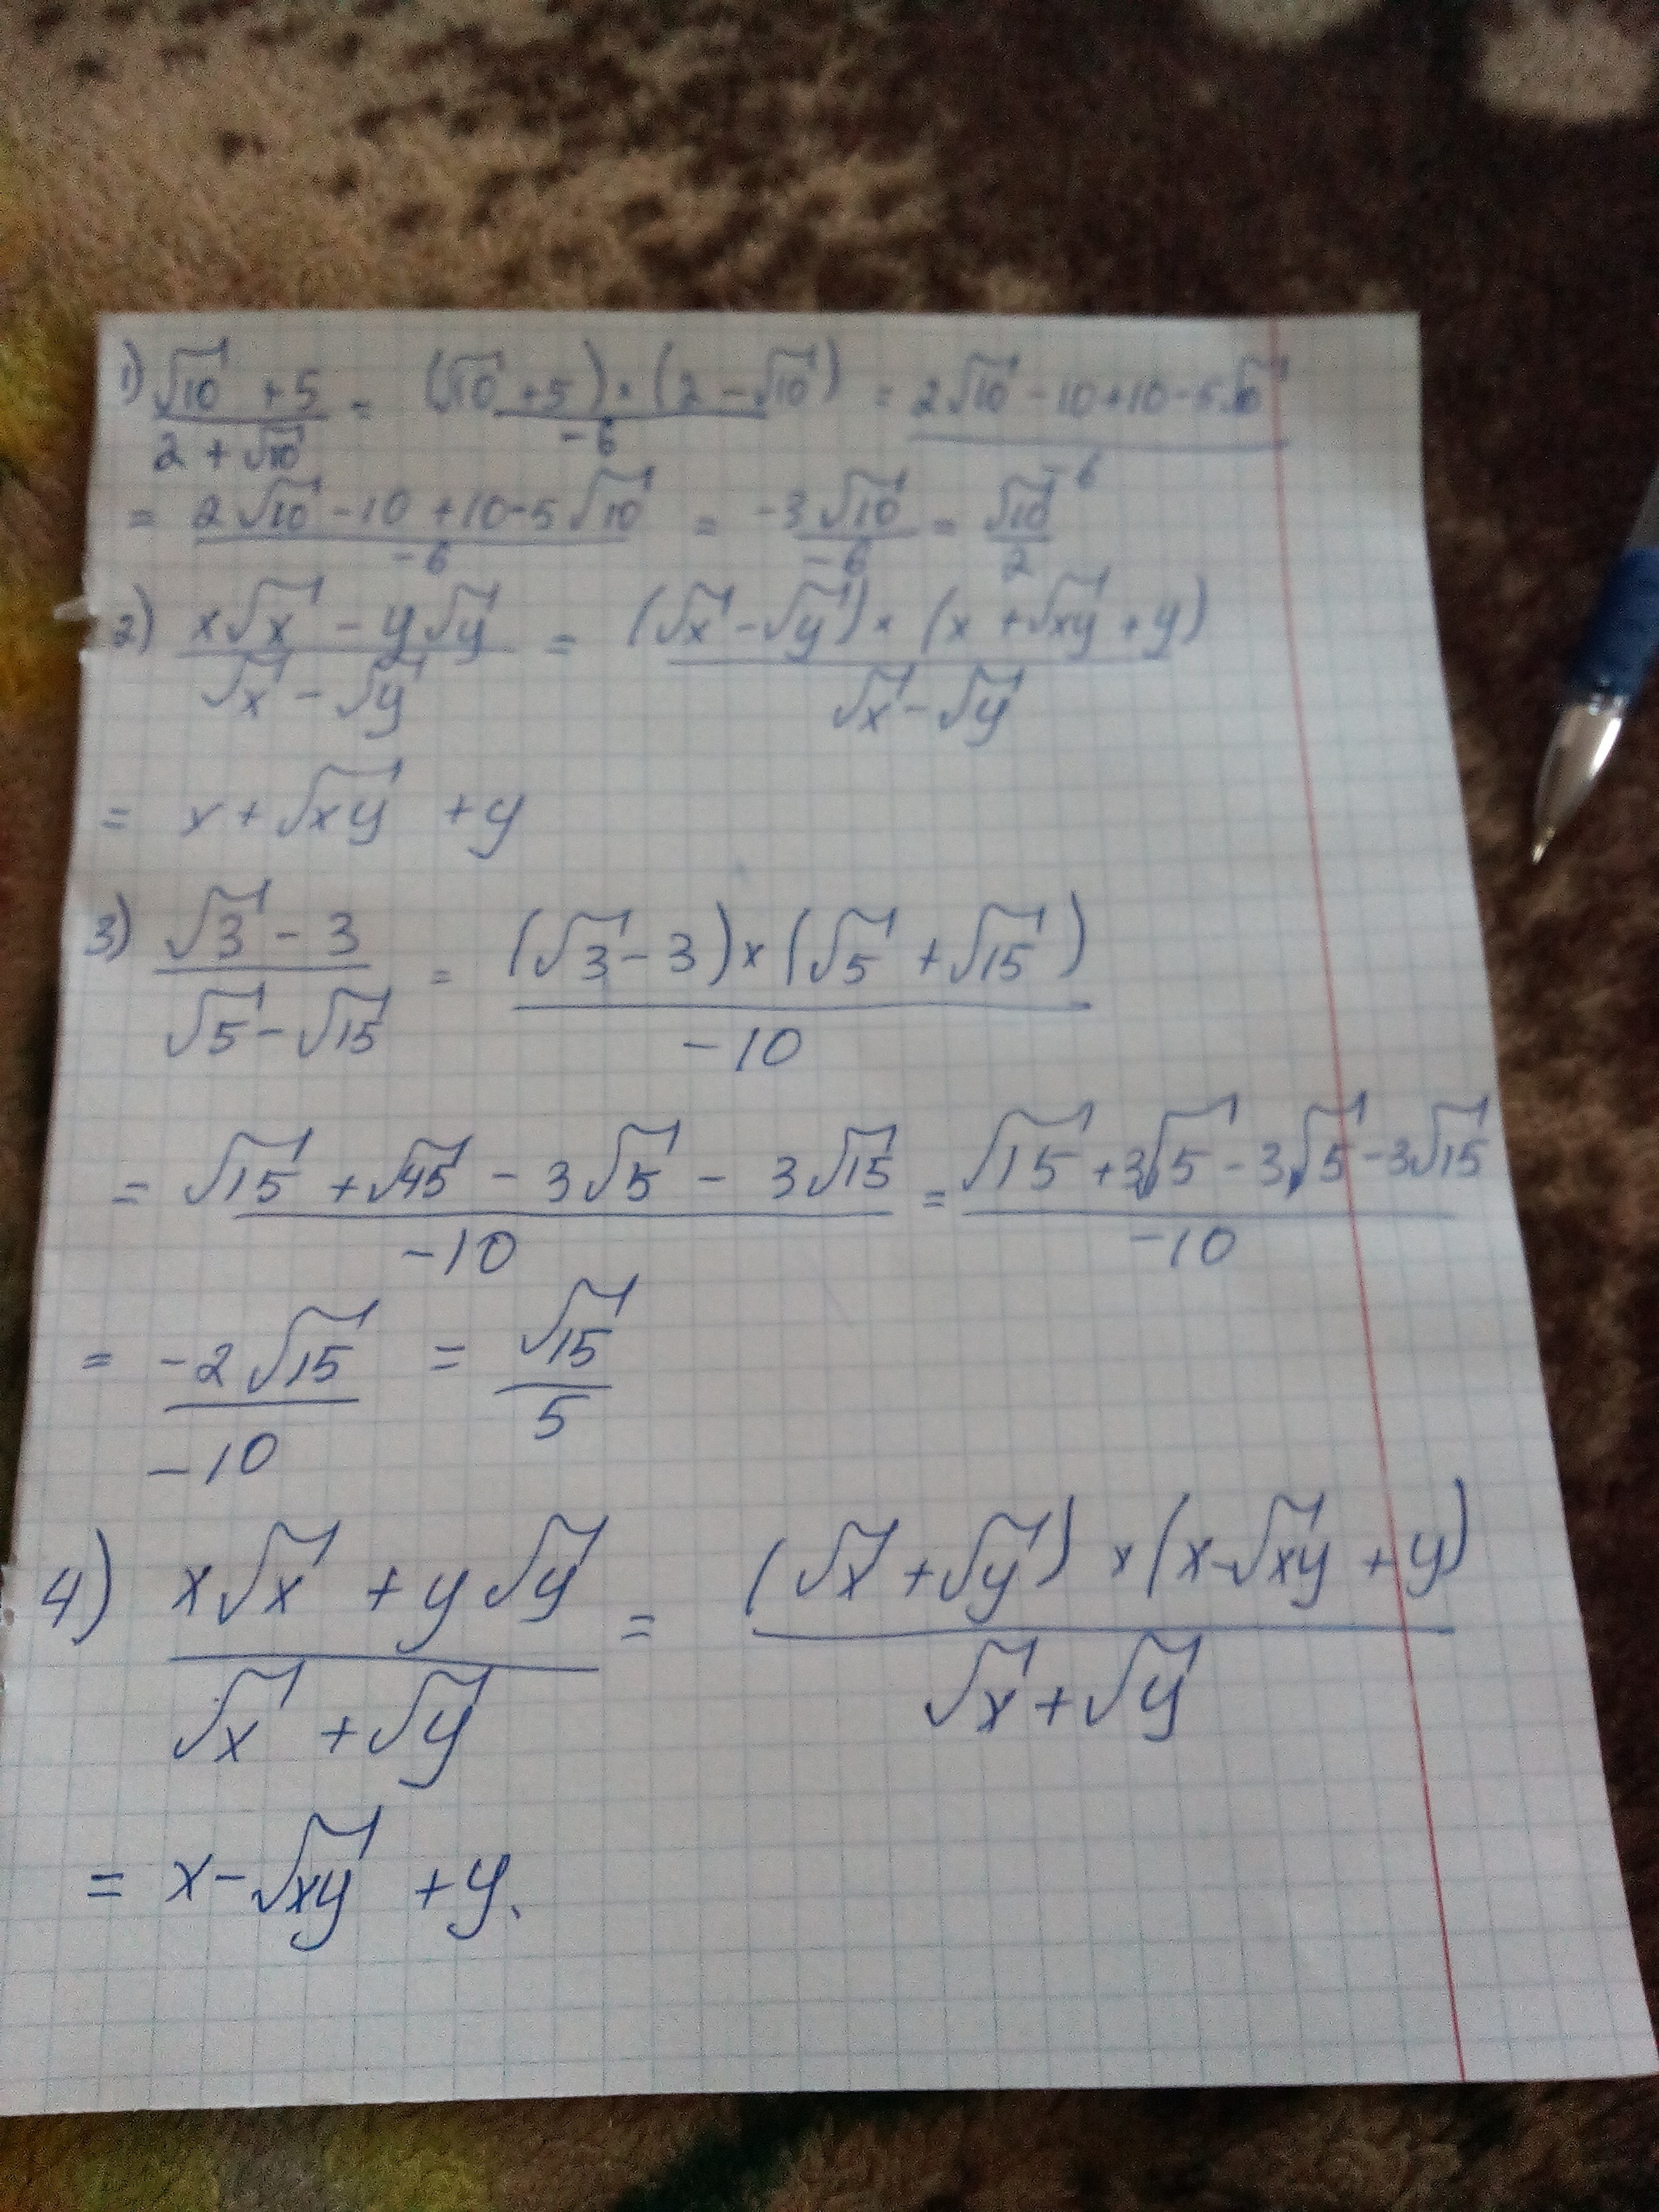 1) (√10 + 5)/(2 + √10) = ((√10 + 5) × (2 - √10))/(-6) = (2√10 - 10 + 10 - 5√10)/(-6)
= (2√10 - 10 + 10 - 5√10)/(-6) = (-3√10)/(-6) = √10/2
2) (x√x - y√y)/(√x - √y) = ((√x - √y) × (x + √xy + y))/(√x - √y)
= x + √xy + y
3) (√3 - 3)/(√5 - √15) = ((√3 - 3) × (√5 + √15))/(-10)
= (√15 + √45 - 3√5 - 3√15)/(-10) = (√15 + 3√5 - 3√5 - 3√15)/(-10)
= (-2√15)/(-10) = √15/5
4) (x√x + y√y)/(√x + √y) = ((√x + √y) × (x - √xy + y))/(√x + √y)
= x - √xy + y.